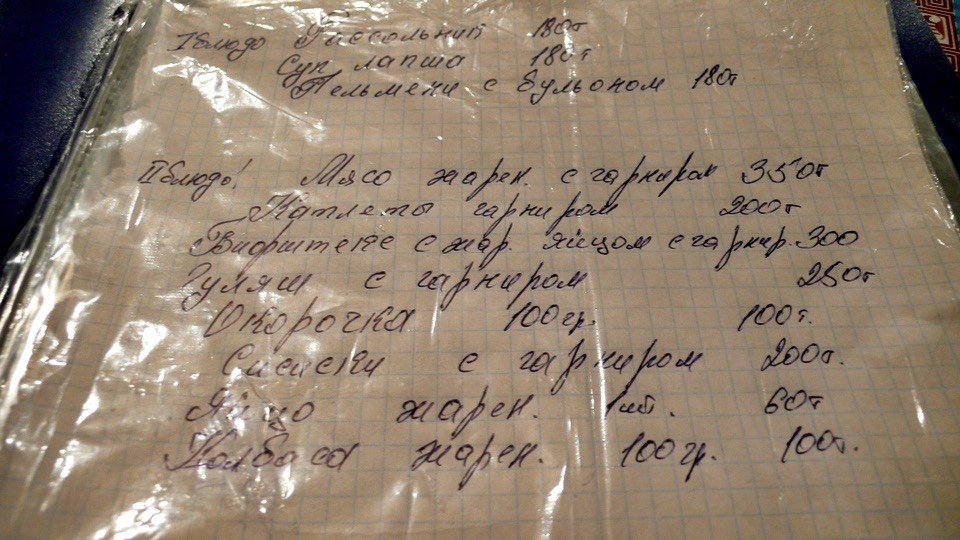 I блюдо Рассольник 180т
Суп лапша 180т
Пельмени с бульоном 180т
II блюдо! Мясо жарен. с гарниром 350т
Катлеты гарниром 200т
Бифштекс с жар. яйцом с гарнир. 300
Гуляш с гарниром 250т
Окорочка 100гр. 100т.
Сисиски с гарниром 200т.
Яйцо жарен. 1шт. 60т
Колбаса жарен. 100гр. 100т.